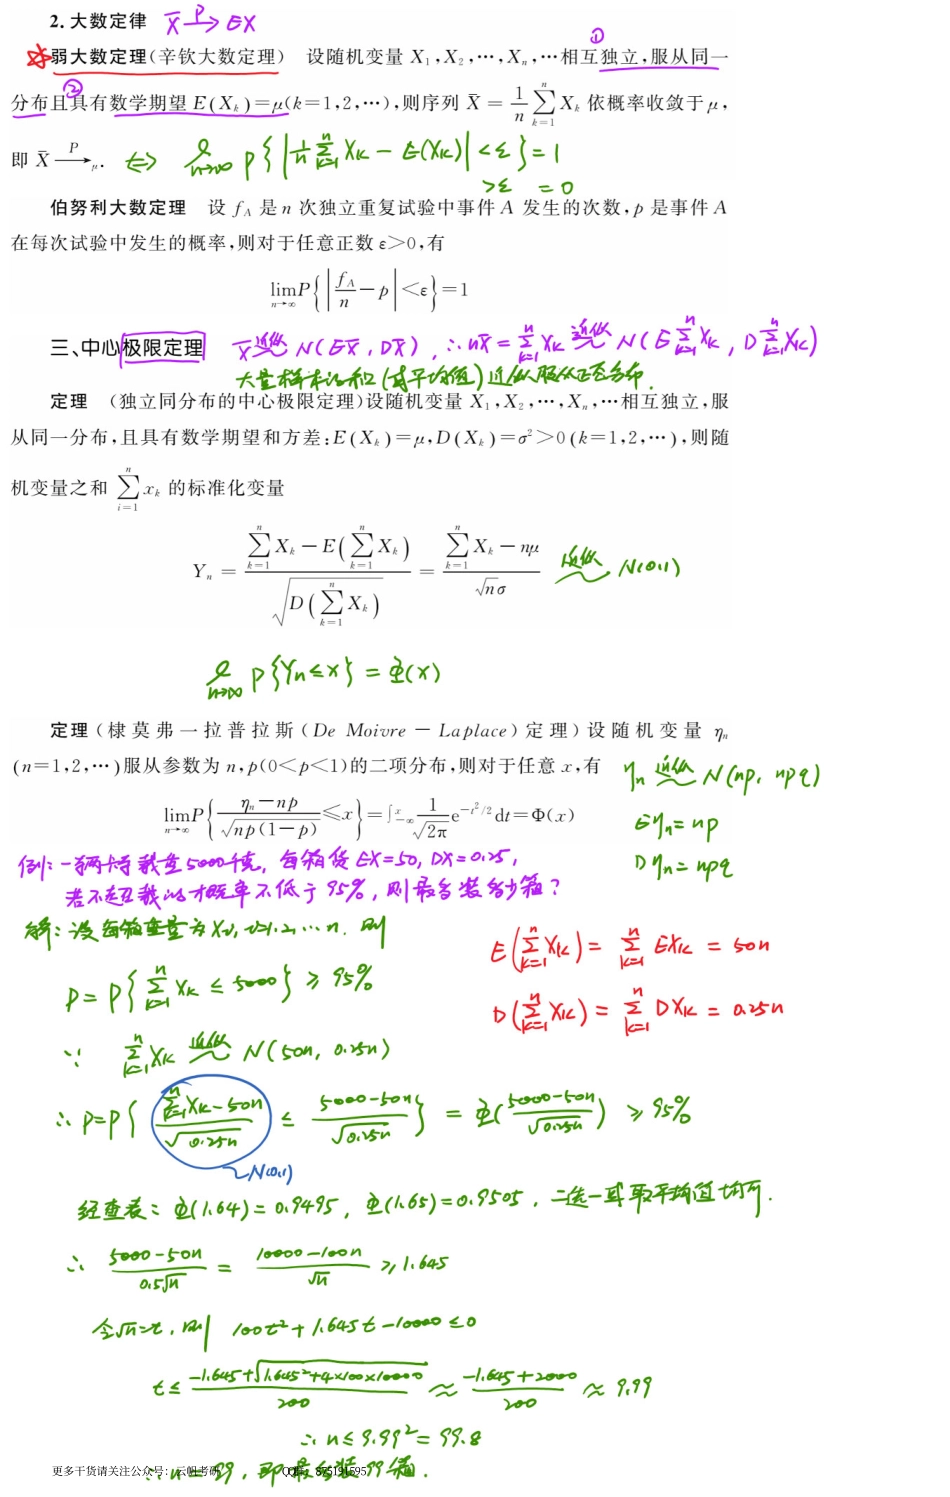 2. 大数定律 X̄ →P EX
弱大数定理(辛钦大数定理) 设随机变量 X₁,X₂,⋯,Xₙ,⋯相互独立,服从同一 ①
分布且具有数学期望 E(Xₖ)=μ(k=1,2,⋯),则序列 X̄ = 1/n ∑_{k=1}^{n} Xₖ 依概率收敛于 μ, ②
即 X̄ →P μ. ⇔ lim_{n→∞} P{|1/n ∑_{k=1}^{n} Xₖ - E(Xₖ)| < ε} = 1
>ε = 0
伯努利大数定理 设 f_A 是 n 次独立重复试验中事件 A 发生的次数, p 是事件 A
在每次试验中发生的概率,则对于任意正数 ε>0,有
lim_{n→∞} P{|f_A/n - p|<ε}=1
三、中心极限定理 X̄ 近似 N(EX̄, DX̄), ∴ nX̄ = ∑_{k=1}^{n} Xₖ 近似 N(E∑_{k=1}^{n} Xₖ, D∑_{k=1}^{n} Xₖ)
大量样本的和(或平均值)近似服从正态分布.
定理 (独立同分布的中心极限定理)设随机变量 X₁,X₂,⋯,Xₙ,⋯相互独立,服
从同一分布,且具有数学期望和方差:E(Xₖ)=μ,D(Xₖ)=σ²>0(k=1,2,⋯),则随
机变量之和 ∑_{i=1}^{n} xₖ 的标准化变量
Yₙ = (∑_{k=1}^{n} Xₖ - E(∑_{k=1}^{n} Xₖ)) / √(D(∑_{k=1}^{n} Xₖ)) = (∑_{k=1}^{n} Xₖ - nμ) / (√n σ) 近似 N(0,1)
lim_{n→∞} P{Yₙ ≤ x} = Φ(x)
定理(棣莫弗—拉普拉斯(De Moivre — Laplace)定理)设随机变量 ηₙ
(n=1,2,⋯)服从参数为 n,p(0<p<1)的二项分布,则对于任意 x,有
ηₙ 近似 N(np, npq)
lim_{n→∞} P{(ηₙ-np)/√(np(1-p)) ≤ x} = ∫_{-∞}^{x} 1/√(2π) e^{-t²/2} dt = Φ(x)
Eηₙ = np
Dηₙ = npq
例:一辆卡车载重5000千克, 每箱货 EX=50, DX=0.25,
若不超载的概率不低于95%, 则最多装多少箱?
解:设每箱重量为 Xᵢ, i=1,2,⋯n. 则
E(∑_{k=1}^{n} Xₖ) = ∑_{k=1}^{n} EXₖ = 50n
P = P{∑_{k=1}^{n} Xₖ ≤ 5000} ≥ 95%
D(∑_{k=1}^{n} Xₖ) = ∑_{k=1}^{n} DXₖ = 0.25n
∵ ∑_{k=1}^{n} Xₖ 近似 N(50n, 0.25n)
∴ P=P{(∑_{k=1}^{n} Xₖ-50n)/√(0.25n) ≤ (5000-50n)/√(0.25n)} = Φ((5000-50n)/√(0.25n)) ≥ 95%
~N(0,1)
经查表: Φ(1.64)=0.9495, Φ(1.65)=0.9505, 二选一或取平均值均可.
∴ (5000-50n)/(0.5√n) = (10000-100n)/√n ≥ 1.645
令√n=t, 则 100t²+1.645t-10000≤0
t ≤ (-1.645+√(1.645²+4×100×10000))/200 ≈ (-1.645+2000)/200 ≈ 9.99
∴ n ≤ 9.99² = 99.8
∴ n=99, 即最多装99箱.
更多干货请关注公众号:云帆考研 QQ群:875191595